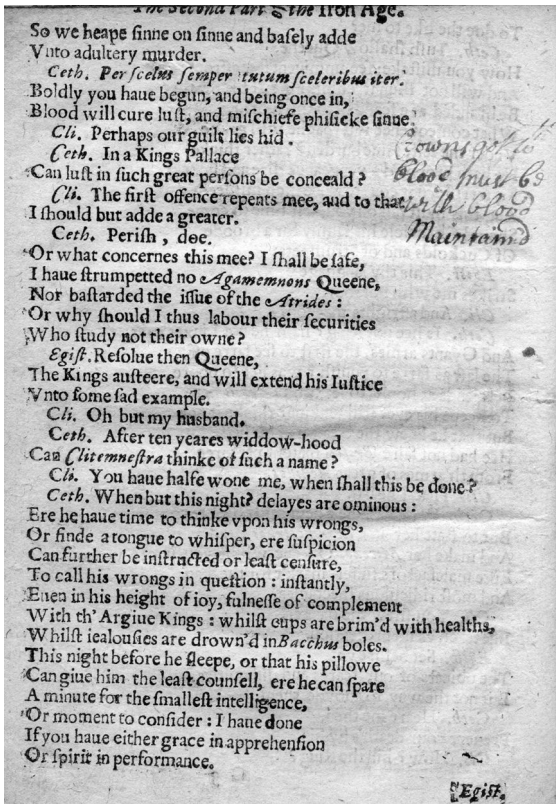 The Second Part of the Iron Age.
So we heape ſinne on ſinne and baſely adde
Vnto adultery murder.
Ceth. Per ſcelus ſemper tutum ſceleribus iter.
Boldly you haue begun, and being once in,
Blood will cure luſt, and miſchiefe phiſicke ſinne.
Cli. Perhaps our guilt lies hid.
Ceth. In a Kings Pallace
Can luſt in ſuch great perſons be conceald?
Cli. The firſt offence repents mee, and to that
I ſhould but adde a greater.
Ceth. Periſh, doe.
Or what concernes this mee? I ſhall be ſafe,
I haue ſtrumpetted no Agamemnons Queene,
Nor baſtarded the iſſue of the Atrides:
Or why ſhould I thus labour their ſecurities
Who ſtudy not their owne?
Egiſt. Reſolue then Queene,
The Kings auſteere, and will extend his Iuſtice
Vnto ſome ſad example.
Cli. Oh but my husband.
Ceth. After ten yeares widdow-hood
Can Clitemneſtra thinke of ſuch a name?
Cli. You haue halfe wone me, when ſhall this be done?
Ceth. When but this night? delayes are ominous:
Ere he haue time to thinke vpon his wrongs,
Or finde a tongue to whiſper, ere ſuſpicion
Can further be inſtructed or leaſt cenſure,
To call his wrongs in queſtion: inſtantly,
Euen in his height of ioy, fulneſſe of complement
With th' Argiue Kings: whilſt cups are brim'd with healths,
Whilſt iealouſies are drown'd in Bacchus boles.
This night before he ſleepe, or that his pillowe
Can giue him the leaſt counſell, ere he can ſpare
A minute for the ſmalleſt intelligence,
Or moment to conſider: I haue done
If you haue either grace in apprehenſion
Or ſpirit in performance.
Egiſt.
Crowns got
blood muſt be
with blood
Maintaind